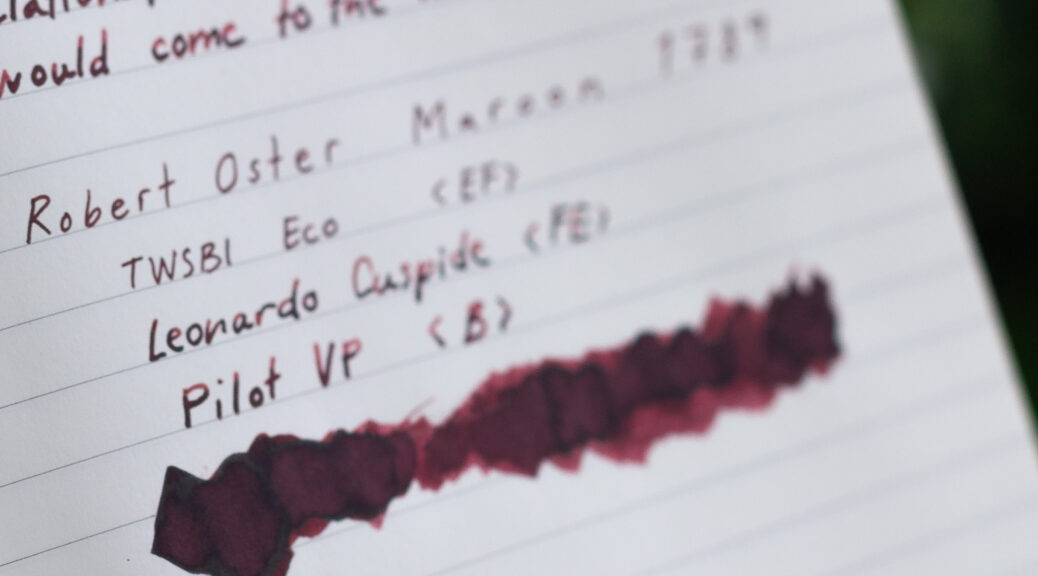 would come to the
Robert Oster Maroon 1789
TWSBI Eco <EF>
Leonardo Cuspide <FE>
Pilot VP <B>